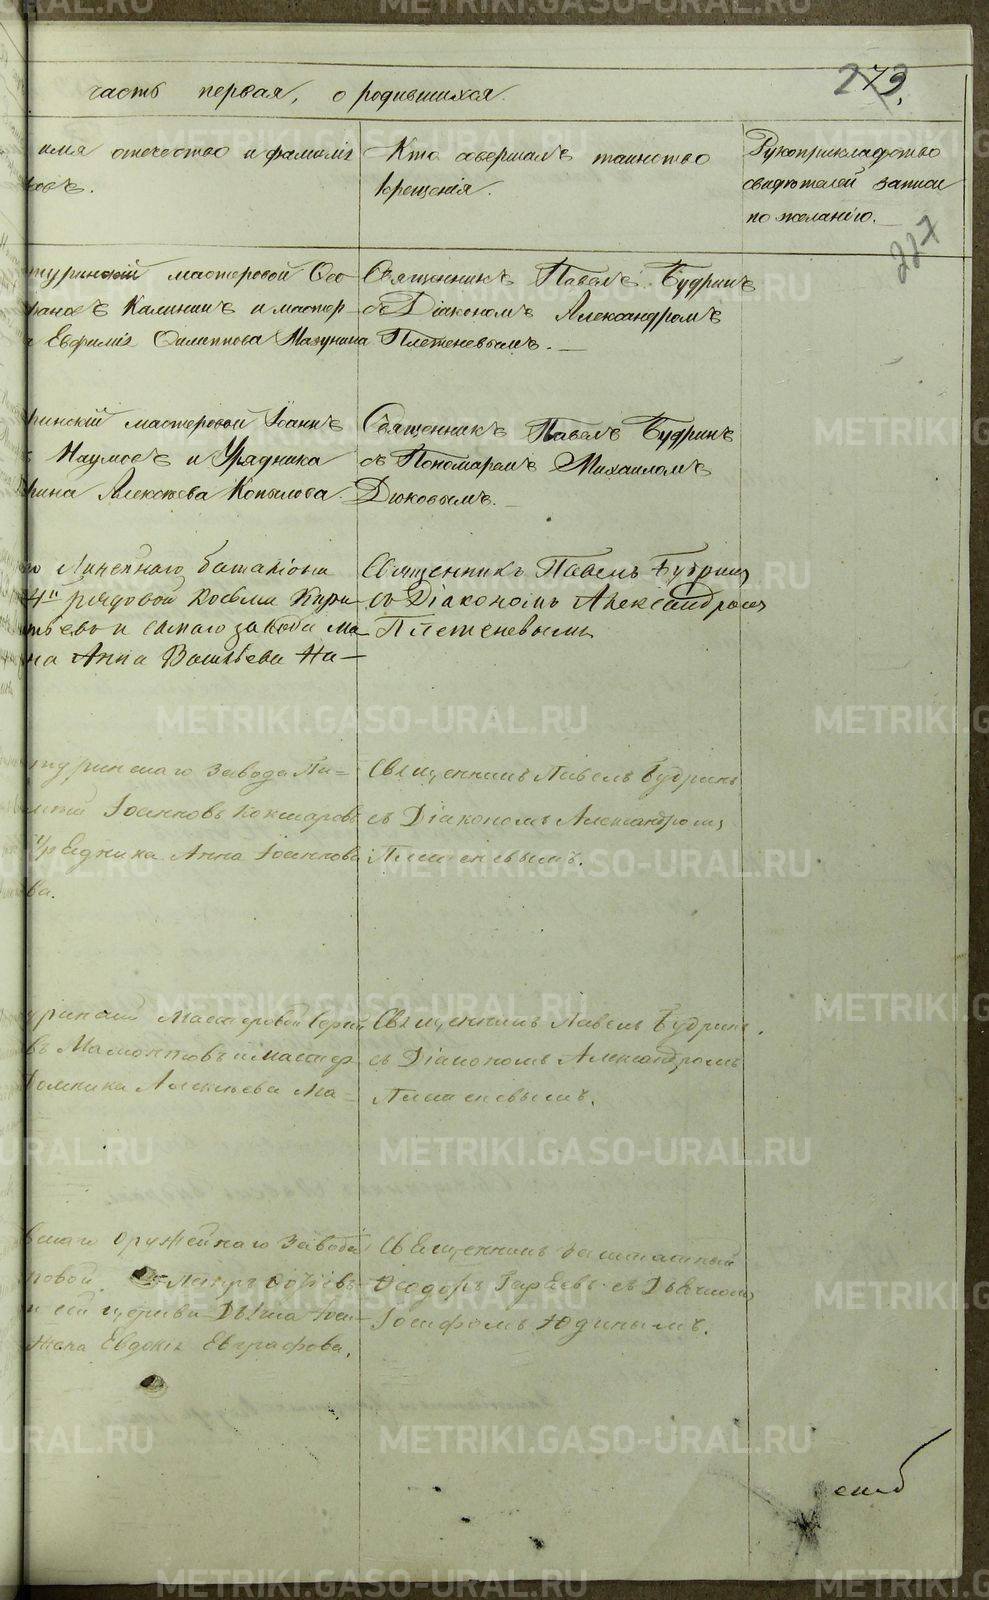 273.
часть первая, о родившихся.
имя отечество и фамилія
Кто совершалъ таинство
крещенія.
Рукоприкладство
свидѣтелей записи
по желанію.
227
туринскій мастеровой
Калининъ и мастер-
Евфимія Филиппова Мазунина
Священникъ Павелъ Будринъ
съ Діакономъ Александромъ
Плетеневымъ.
ринскій мастеровой Іоаннъ
Наумовъ и Урядника
рина Алексѣева Копылова.
Священникъ Павелъ Будринъ
съ Пономаремъ Михаиломъ
Дюковымъ.
го Линейнаго баталіона
рядовой Косьма Кири-
самаго завода ма-
на Анна Васильева На-
Священникъ Павелъ Будринъ
съ Діакономъ Александромъ
Плетеневымъ
туринскаго завода
Іоанновъ Кокшаровъ
Урядника Анна Іоаннова
ва.
Священникъ Павелъ Будринъ
съ Діакономъ Александромъ
Плетеневымъ.
уринскій Мастеровой Сергій
въ Мамонтовъ и мастер-
Домника Алексѣева Ма-
Священникъ Павелъ Будринъ.
съ Діакономъ Александромъ
Плетеневымъ.
вскаго Оружейнаго завода
сей церкви Дьяка
жена Евдокія Евграфова.
Священникъ заштатный
Ѳеодоръ съ Дьячкомъ
Іосифомъ Юдинымъ.
METRIKI.GASO-URAL.RU